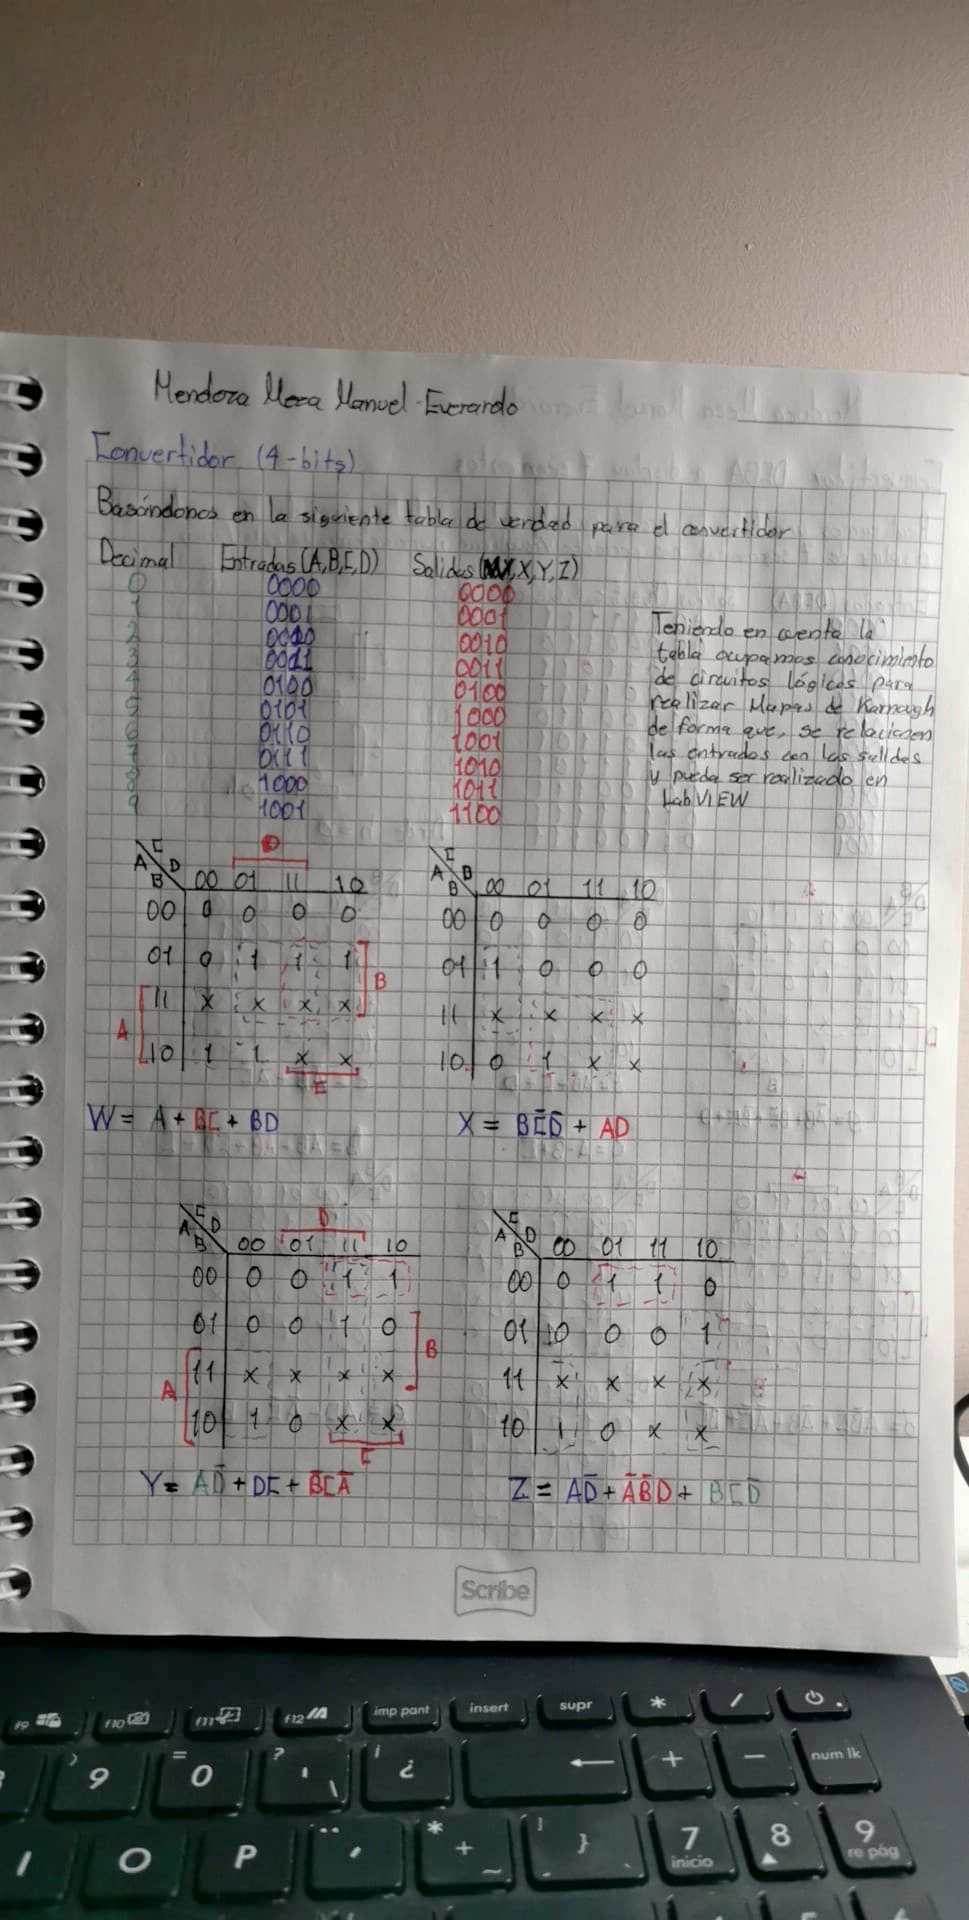 Mendoza Meza Manuel Everardo
Convertidor (4-bits)
Basándonos en la siguiente tabla de verdad para el convertidor
Decimal Entradas (A,B,C,D) Salidas (W,X,Y,Z)
0 0000 0000
1 0001 0001
2 0010 0010
3 0011 0011
4 0100 0100
5 0101 1000
6 0110 1001
7 0111 1010
8 1000 1011
9 1001 1100
Teniendo en cuenta la
tabla ocupamos conocimiento
de circuitos lógicos para
realizar Mapas de Karnaugh
de forma que, se relacionen
las entradas con las salidas
y pueda ser realizado en
LabVIEW
D
C
A D
B 00 01 11 10
00 0 0 0 0
01 0 1 1 1 B
A 11 x x x x
10 1 1 x x
C
W = A + BC + BD
C
A D
B 00 01 11 10
00 0 0 0 0
01 1 0 0 0
11 x x x x
10 0 1 x x
X = BC̄D̄ + AD
D
C
A D
B 00 01 11 10
00 0 0 1 1
01 0 0 1 0 B
A 11 x x x x
10 1 0 x x
C
Y = AD̄ + DC + B̄CĀ
C
A D
B 00 01 11 10
00 0 1 1 0
01 0 0 0 1
11 x x x x
10 1 0 x x
Z = AD̄ + ĀB̄D + BCD̄
Scribe
f9
f10
f11
f12
imp pant
insert
supr
*
/
) 9
= 0
? '
\
¡ ¿
←
+
-
num lk
I
O
P
¨ ´
* + ~
] }
7 inicio
8
9 re pág